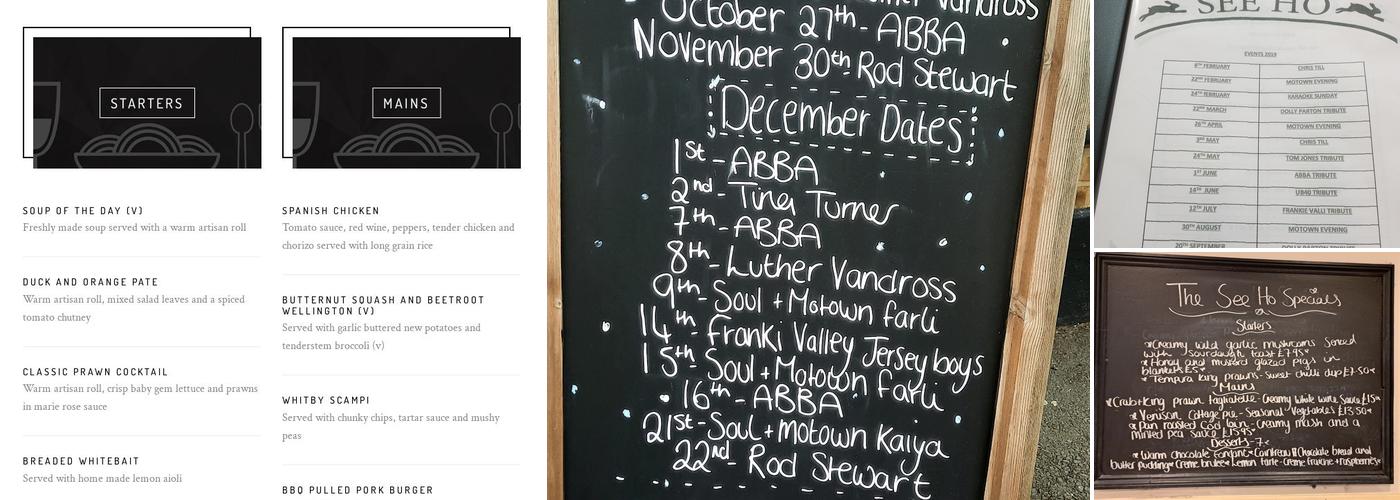 STARTERS
SOUP OF THE DAY (V)
Freshly made soup served with a warm artisan roll
DUCK AND ORANGE PATE
Warm artisan roll, mixed salad leaves and a spiced
tomato chutney
CLASSIC PRAWN COCKTAIL
Warm artisan roll, crisp baby gem lettuce and prawns
in marie rose sauce
BREADED WHITEBAIT
Served with home made lemon aioli
MAINS
SPANISH CHICKEN
Tomato sauce, red wine, peppers, tender chicken and
chorizo served with long grain rice
BUTTERNUT SQUASH AND BEETROOT
WELLINGTON (V)
Served with garlic buttered new potatoes and
tenderstem broccoli (v)
WHITBY SCAMPI
Served with chunky chips, tartar sauce and mushy
peas
BBQ PULLED PORK BURGER
Vandross
October 27th - ABBA
November 30th - Rod Stewart
December Dates
1st - ABBA
2nd - Tina Turner
7th - ABBA
8th - Luther Vandross
9th - Soul + Motown farli
14th - Franki Valley Jersey boys
15th - Soul + Motown farli
16th - ABBA
21st - Soul + Motown Kaiya
22nd - Rod Stewart
SEE HO
EVENTS 2019
8TH FEBRUARY CHRIS TILL
22ND FEBRUARY MOTOWN EVENING
24TH FEBRUARY KARAOKE SUNDAY
22ND MARCH DOLLY PARTON TRIBUTE
26TH APRIL MOTOWN EVENING
3RD MAY CHRIS TILL
24TH MAY TOM JONES TRIBUTE
1ST JUNE ABBA TRIBUTE
14TH JUNE UB40 TRIBUTE
12TH JULY FRANKIE VALLI TRIBUTE
30TH AUGUST MOTOWN EVENING
20TH SEPTEMBER DOLLY PARTON TRIBUTE
The See Ho Specials
Starters
*Creamy wild garlic mushrooms served
with sourdough toast £7.95*
*Honey and mustard glazed pigs in
blankets £5*
*Tempura king prawns - sweet chilli dip £7.50*
Mains
*Crab + king prawn tagliatelle - Creamy white wine sauce £15*
*Venison Cottage pie - Seasonal Vegetables £13.50*
*Pan roasted Cod loin - creamy mash and a
minted pea sauce £15.95*
Desserts - 7
*Warm chocolate fondant * Cointreau Chocolate bread and
butter pudding * Creme brulee * Lemon tarte - creme fraiche + raspberries*